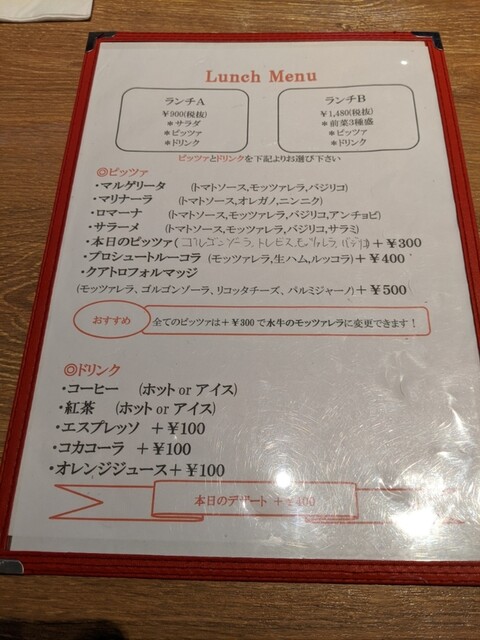 Lunch Menu
ランチA
¥900(税抜)
＊サラダ
＊ピッツァ
＊ドリンク
ランチB
¥1,480(税抜)
＊前菜3種盛
＊ピッツァ
＊ドリンク
ピッツァとドリンクを下記よりお選び下さい
◎ピッツァ
・マルゲリータ (トマトソース,モッツァレラ,バジリコ)
・マリナーラ (トマトソース,オレガノ,ニンニク)
・ロマーナ (トマトソース,モッツァレラ,バジリコ,アンチョビ)
・サラーメ (トマトソース,モッツァレラ,バジリコ,サラミ)
・本日のピッツァ(ゴルゴンゾーラ,トレビス,モッツァレラ,バジリコ)+¥300
・プロシュートルーコラ (モッツァレラ,生ハム,ルッコラ)+¥400
・クアトロフォルマッジ
(モッツァレラ、ゴルゴンゾーラ、リコッタチーズ、パルミジャーノ)+¥500
おすすめ 全てのピッツァは+¥300で水牛のモッツァレラに変更できます!
◎ドリンク
・コーヒー (ホット or アイス)
・紅茶 (ホット or アイス)
・エスプレッソ +¥100
・コカコーラ +¥100
・オレンジジュース+¥100
本日のデザート +¥400